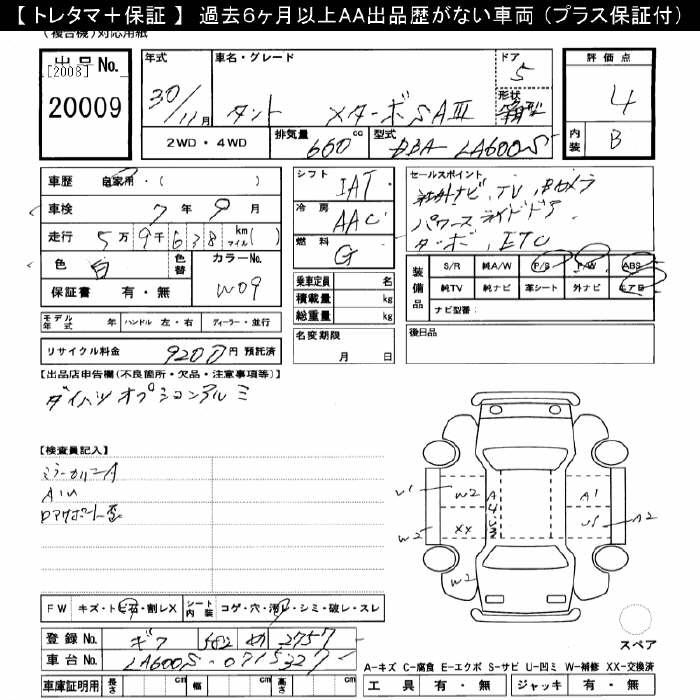 【 トレタマ＋保証 】 過去６ヶ月以上ＡＡ出品歴がない車両（プラス保証付）
(複合機)対応用紙
出品No.
[2008]
20009
年式
30/11月
車名・グレード
タント XターボSAⅢ
ドア
5
形状
箱型
評価点
4
内装
B
2WD・4WD
排気量
660 cc
型式
DBA LA600S
車歴 自家用・( )
車検 7年9月
走行 5万9千638 km マイル( )
色 白
色替
カラーNo.
W09
保証書 有・無
モデル年式 年
ハンドル 左・右
ディーラー・並行
リサイクル料金 9200円 預託済
シフト
IAT
冷房
AAC
燃料
G
乗車定員 名
積載量 kg
総重量 kg
名変期限
月 日
セールスポイント
社外ナビ、TV、Bカメラ
パワースライドドア
ターボ、ETC
装備品
S/R 純A/W P/S P/W ABS
純TV 純ナビ 革シート 外ナビ エアB
ナビ型番:
後日品
【出品店申告欄(不良箇所・欠品・注意事項等)】
ダイハツオプションアルミ
【検査員記入】
ミラーカバーA
AハU
ロアサポート歪
W1 W2 A1
W2 XX A2
W2
FW キズ・トビ石・割レX
シート内装 コゲ・穴・汚レ・シミ・破レ・スレ
登録No. ギフ 582 わ 2757
車台No. LA600S-0715327
車庫証明用 長さ cm 幅 cm 高さ cm
スペア
A-キズ C-腐食 E-エクボ S-サビ U-凹ミ W-補修 XX-交換済
工具 有・無 ジャッキ 有・無